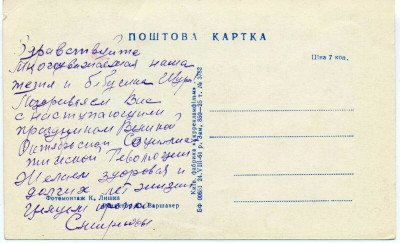 ПОШТОВА КАРТКА
Ціна 7 коп.
Здравствуйте
Многоуважаемая наша
тетя и бабусика Шура!
Поздравляем Вас
с наступающим
праздником Великой
Октябрьской Социалис
тической Революции
Желаем здоровья и
долгих лет жизни
целуем крепко
Смирновы
Фотомонтаж К. Лишка
Варшавер
Київ, фабрика «Укррекламфільм»
БФ 24.VIII-61 р. Зам.